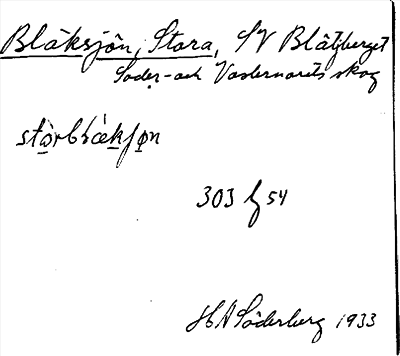 Bläksjön, Stora, SV Blätjberget
Söder- och Västernorets skog
stòrblækʃøn
303 54
H A Söderberg 1933